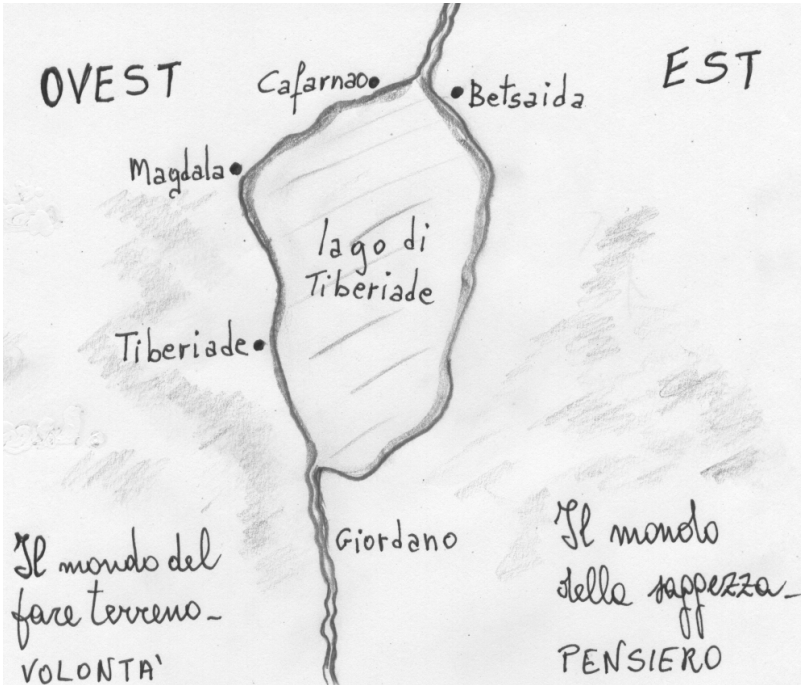 OVEST
EST
Cafarnao
Betsaida
Magdala
lago di
Tiberiade
Tiberiade
Giordano
Il mondo del
fare terreno-
VOLONTA'
Il mondo
della saggezza-
PENSIERO